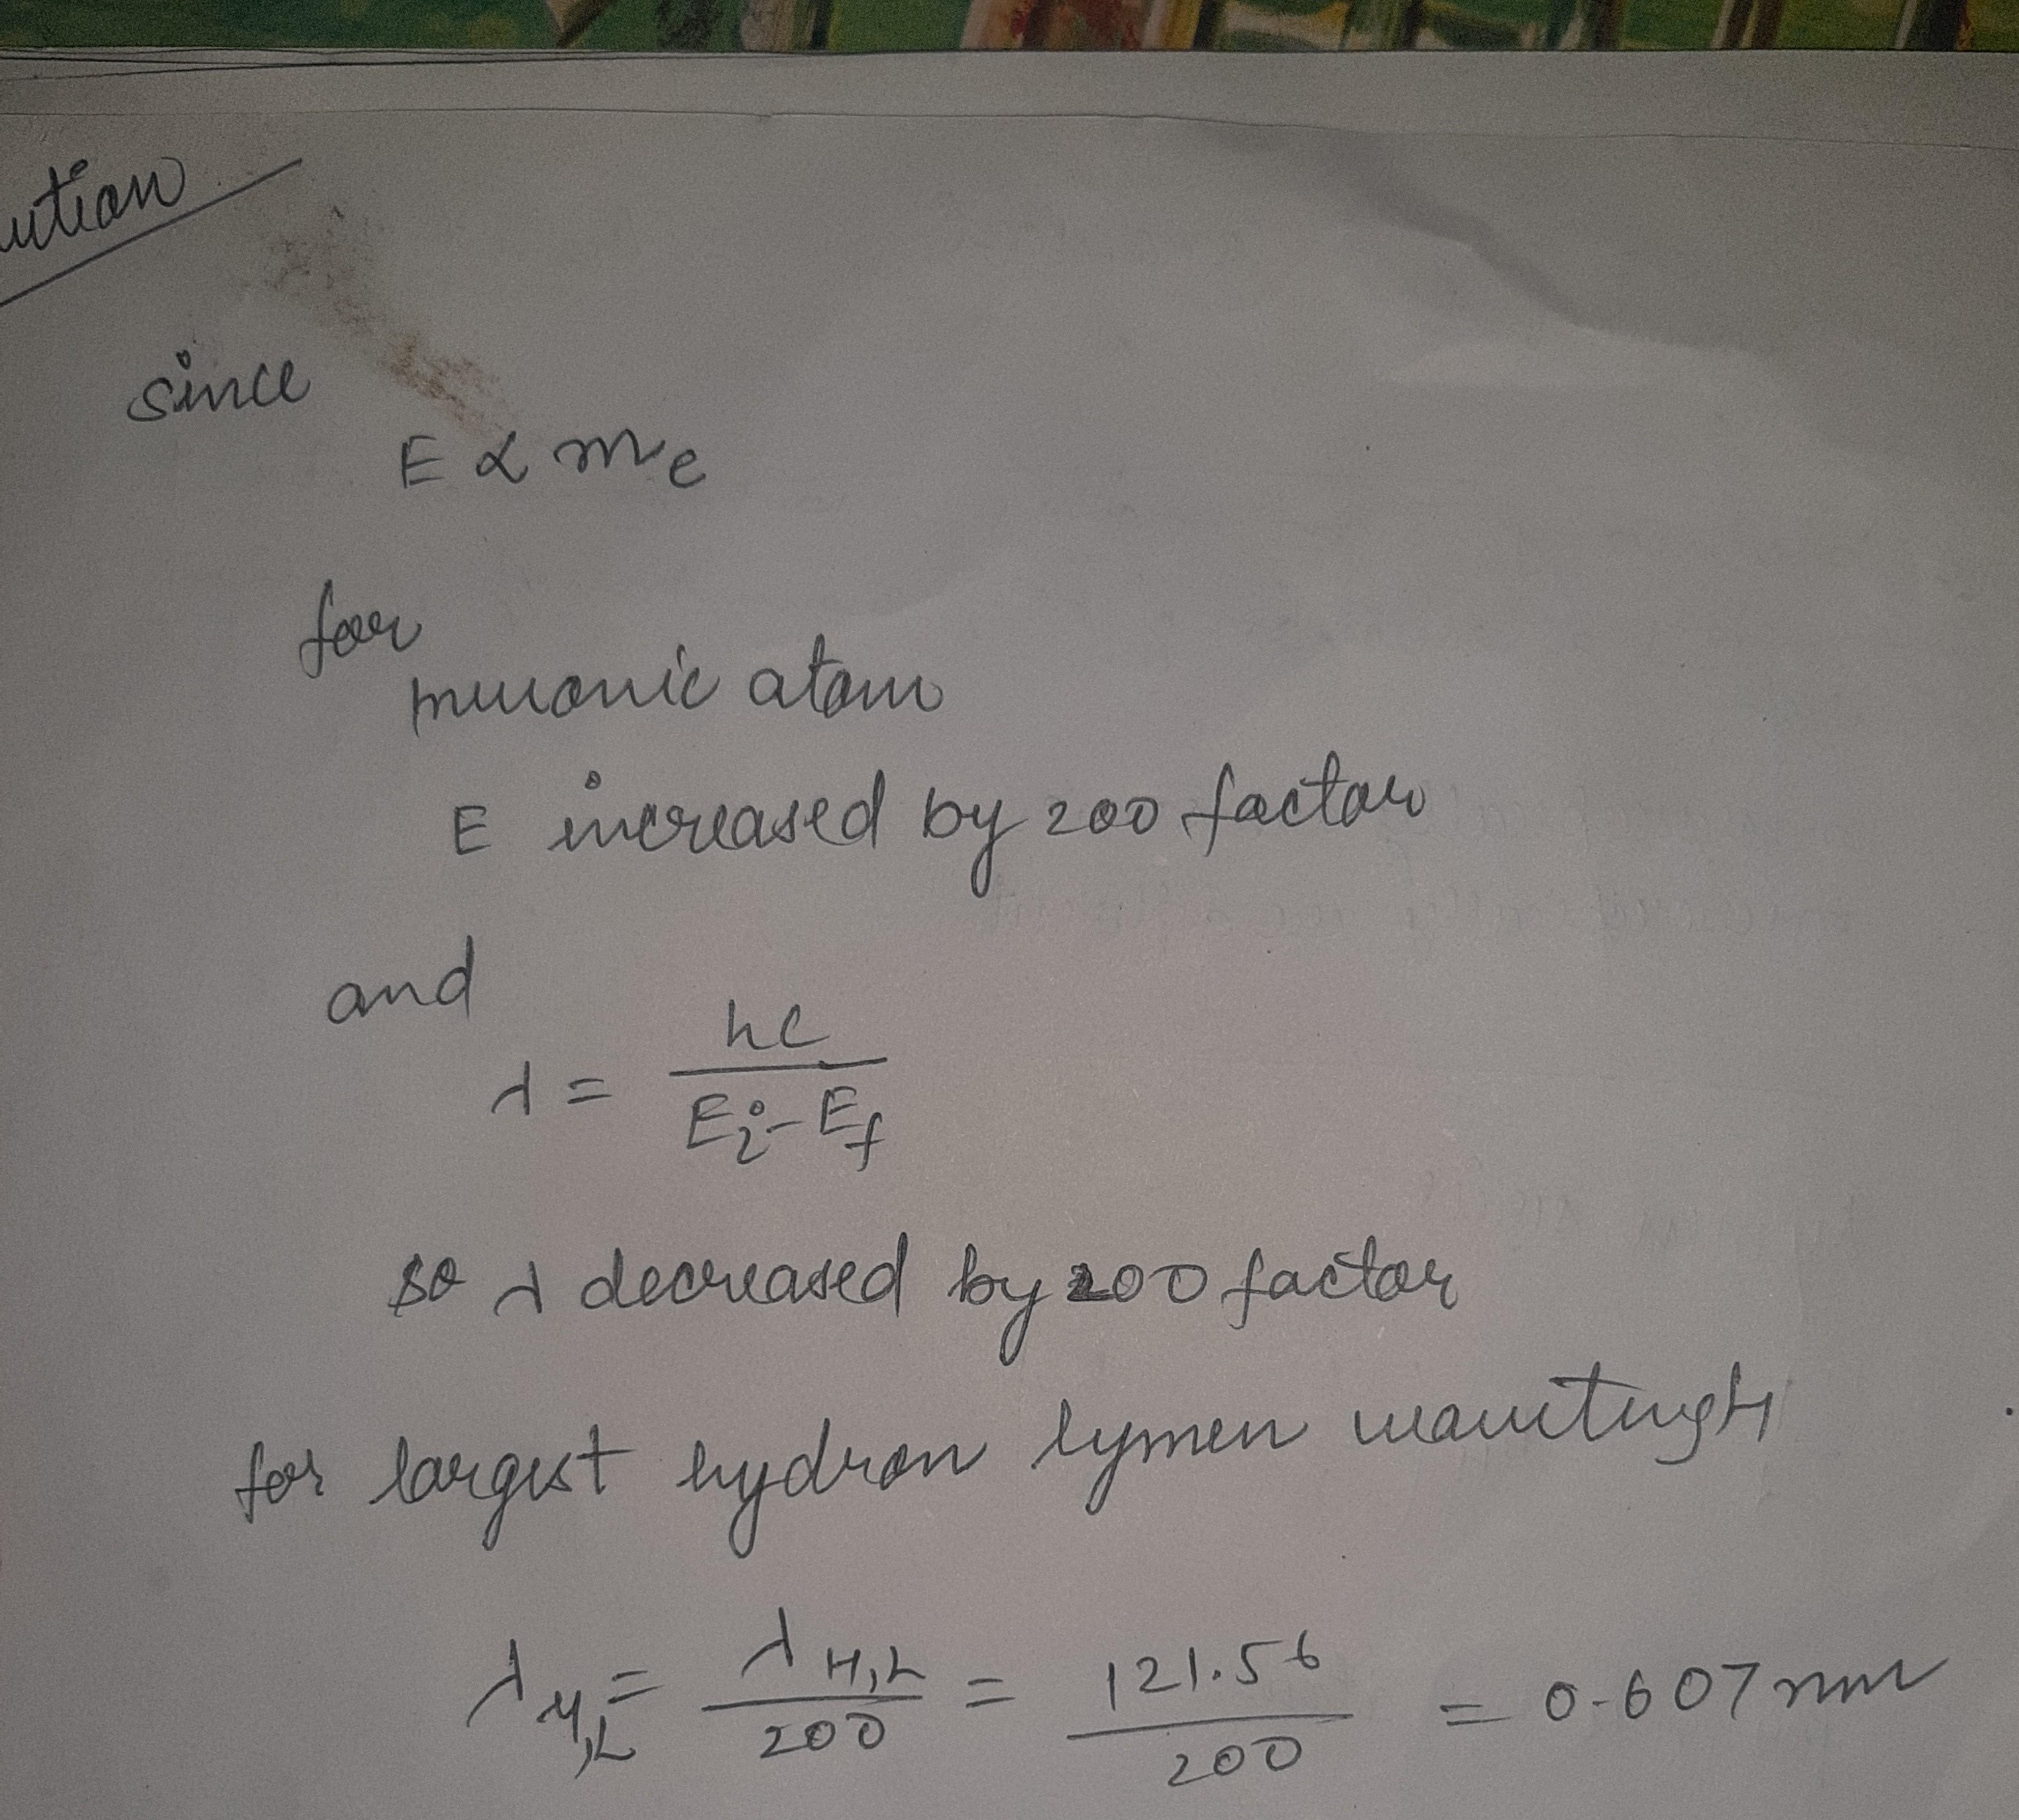 ution
since
E ∝ me
for
muonic atom
E increased by 200 factor
and
λ = hc / Ei - Ef
so λ decreased by 200 factor
for largest hydron lymen
λμ,L = λH,L / 200 = 121.56 / 200 = 0.607 nm